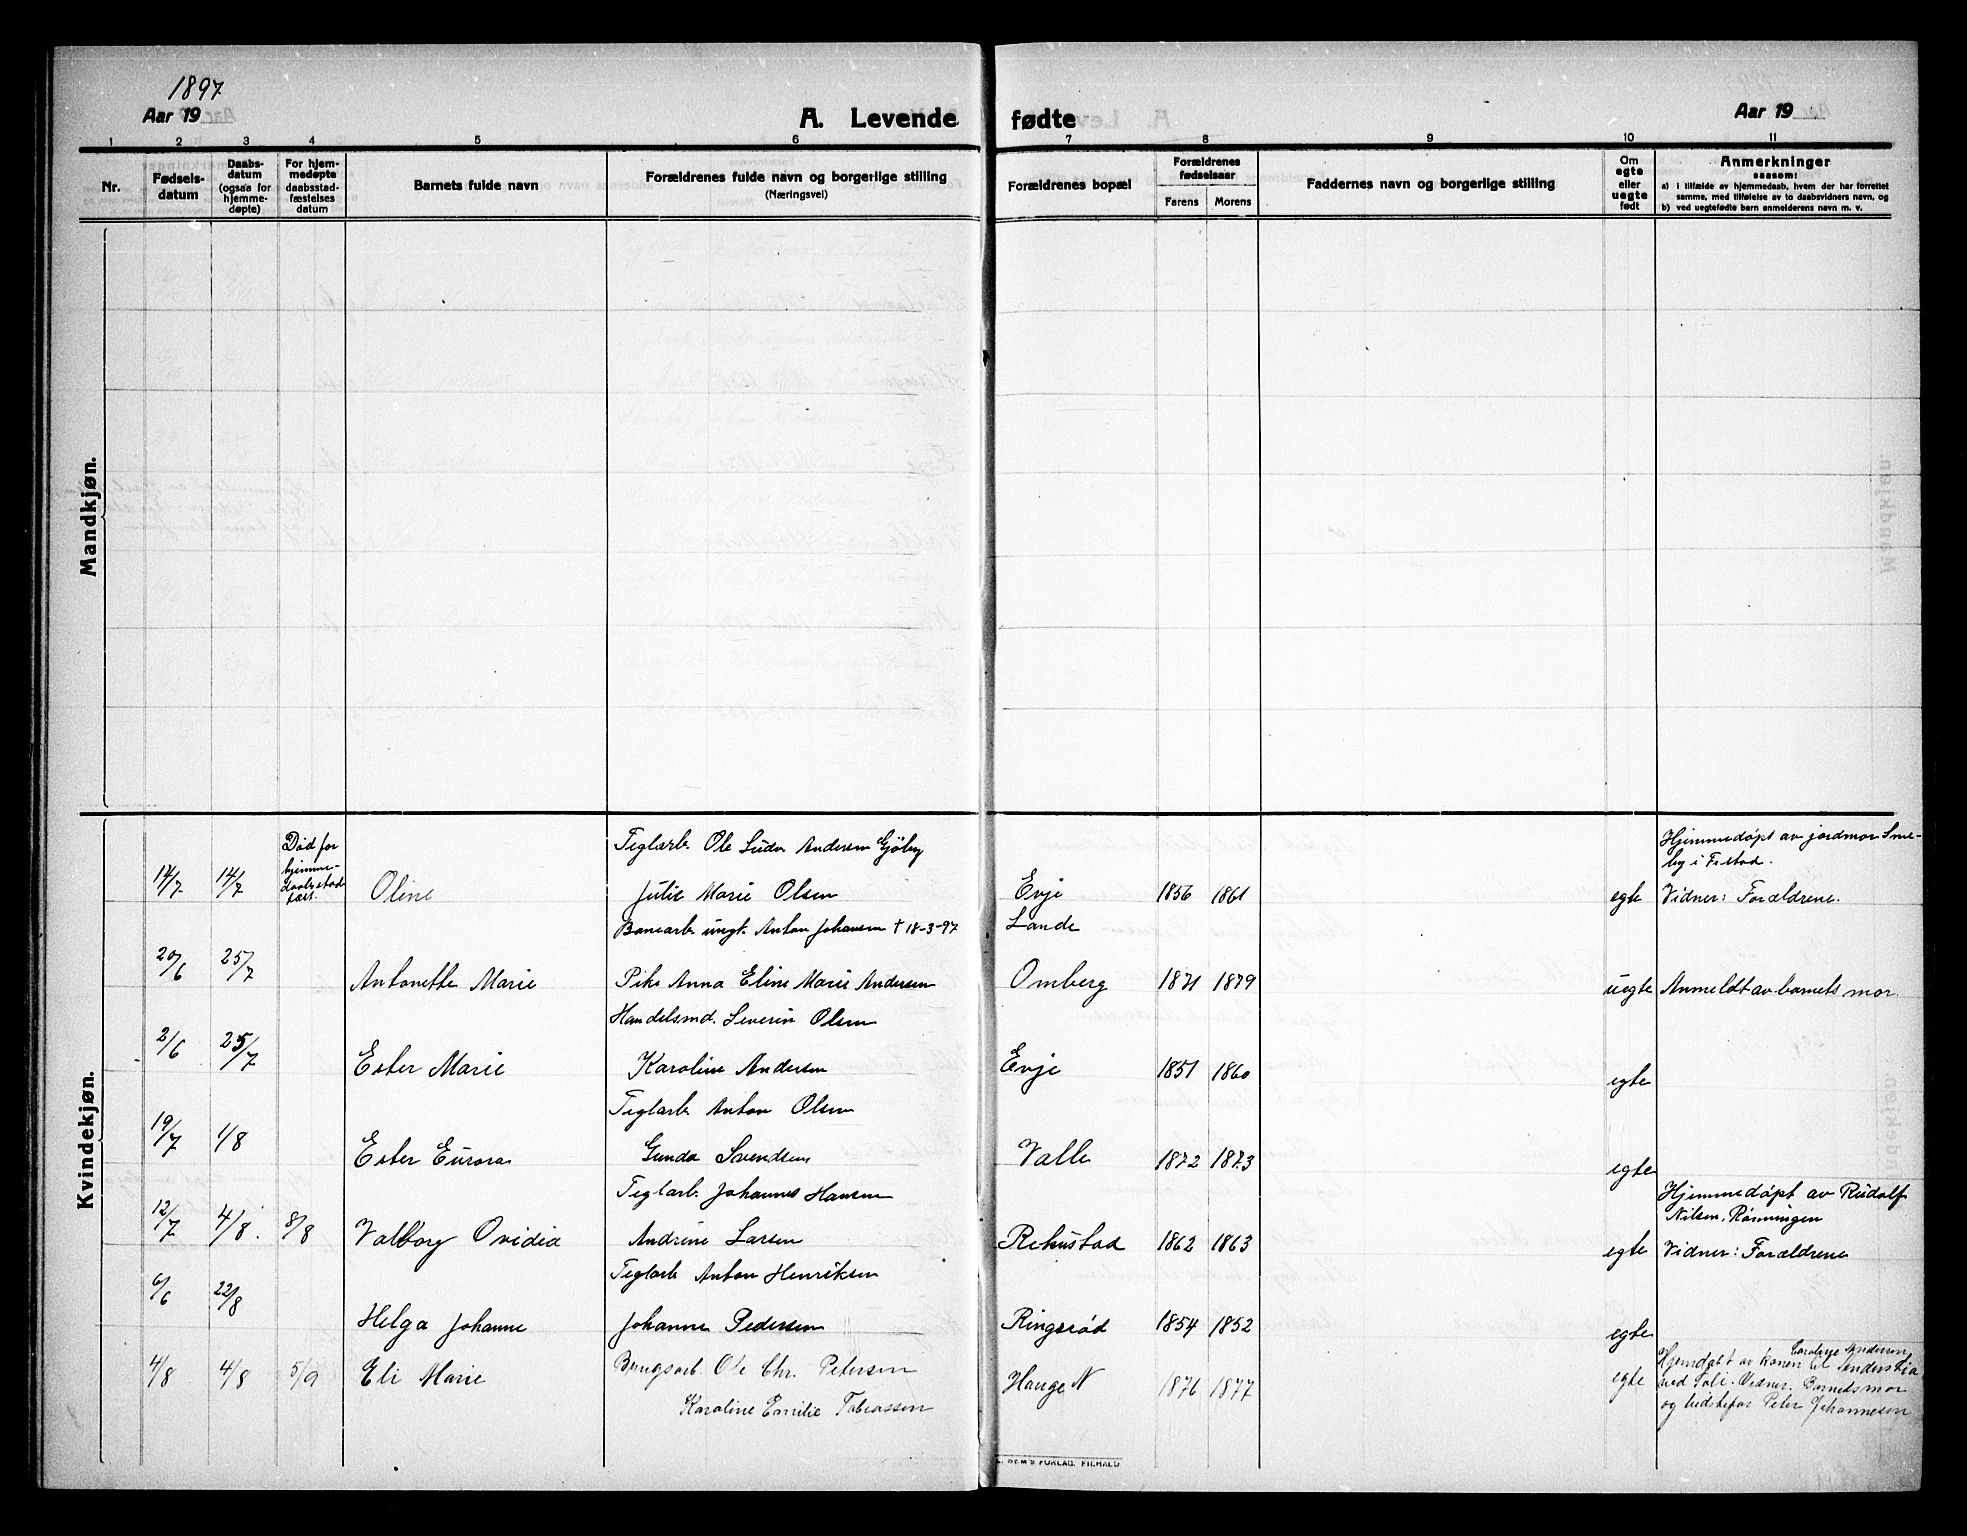 1897
Aar 19
A. Levende fødte
Aar 19
1 2 3 4 5 6 7 8 9 10 11
Nr.
Fødsels-
datum
Daabs-
datum
(ogsaa for
hjemme-
døpte)
For hjem-
medøpte
daabsstad-
fæstelses
datum
Barnets fulde navn
Forældrenes fulde navn og borgerlige stilling
(Næringsvei)
Forældrenes bopæl
Forældrenes
fødselsaar
Farens Morens
Faddernes navn og borgerlige stilling
Om
egte
eller
uegte
født
Anmerkninger
saasom:
a) i tilfælde av hjemmedaab, hvem der har forrettet
samme, med tilføielse av to daabsvidners navn, og
b) ved uegtefødte barn anmelderens navn m. v.
Mandkjøn.
Kvindekjøn.
14/7 14/7
Død for
hjemme-
daabsstad
fæst.
Oline
Teglarb. Ole Andersen Gjöby
Julie Marie Olsen
Evje
1856 1861
egte
Hjemmedøpt av jordmor Sme-
by i
Vidner: Forældrene.
20/6 25/7
Antonette Marie
Banearb. ungk. Anton Johansen † 18-3-97
Pike Anna Eline Marie Andersen
Lande
Omberg
1871 1879
uegte
Anmeldt av barnets mor.
2/6 25/7
Ester Marie
Handelsmd. Severin Olsen
Karoline Andersen
Evje
1851 1860
egte
19/7 1/8
Ester Eurora
Teglarb. Anton Olsen
Gunda Svendsen
Valle
1872 1873
egte
12/7 4/8 8/8
Valborg Ovidia
Teglarb. Johannes Hansen
Andrine Larsen
Rekustad
1862 1863
egte
Hjemmedøpt av Rudolf
Nilsen, Rønningen
Vidner: Forældrene
6/6 22/8
Helga Johanne
Teglarb. Anton Henriksen
Johanne Pedersen
Ringsrød
1854 1852
egte
4/8 4/8 5/9
Eli Marie
Brugsarb. Ole Chr. Petersen
Karoline Emilie Tobiassen
Hauge N
1876 1877
egte
Andersen
Hjemdøbt av konen til
ved Vidner. Barnets mor
og bedstefar Peter Johannesen
FORLAG, FR.HALD